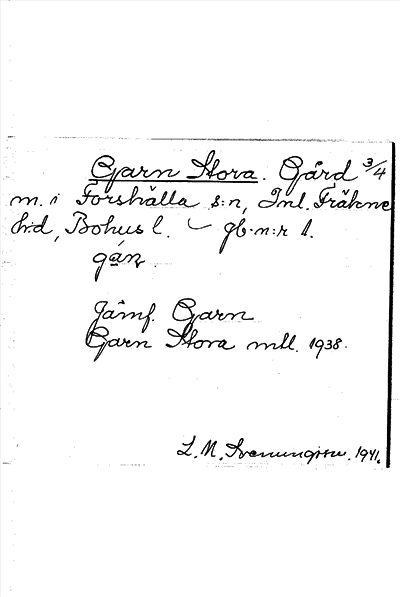 Garn Stora. Gård 3/4
m. i Forshälla s:n, Inl. Fräkne
h:d, Bohus l. gb:n:r 1.
gáṇ.
Jämf. Garn
Garn Stora mtl. 1938.
L. M. Svenungsson. 1941.